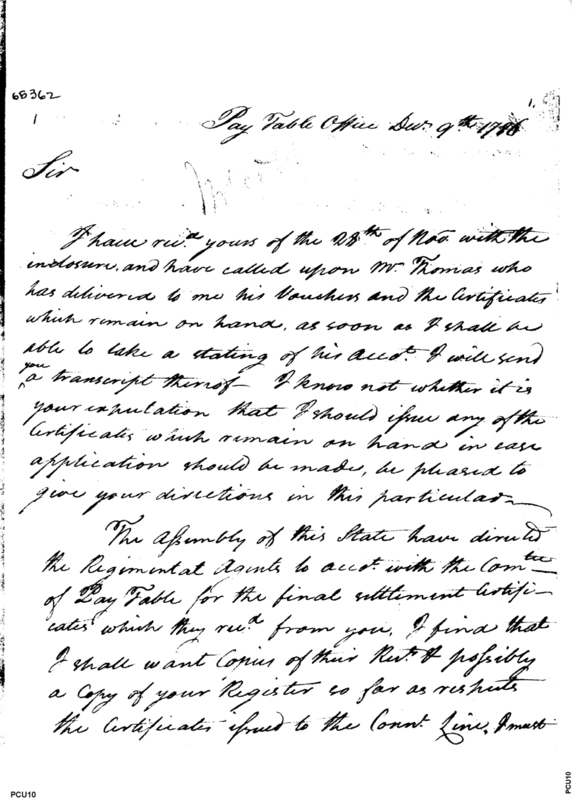 68362
1
1.
Pay Table Office Decr. 9th 1786
Sir
I have recd. yours of the 28th of Nov. with the
inclosure, and have called upon Mr. Thomas who
has delivered to me his Vouchers and the Certificates
which remain on hand, as soon as I shall be
able to take a stating of his Accot. I will send
you
^ a transcript thereof – I know not whether it is
your expectation that I should issue any of the
Certificates which remain on hand in case
application should be made, be pleased to
give your directions in this particular
The Assembly of this State have directed
the Regimental Agents to accot. with the Comtee
of Pay Table for the final settlement Certifi–
cates which they recd. from you, I find that
I shall want Copies of their Rects. & possibly
a Copy of your Register so far as respects
the Certificates issued to the Connt. Line, I must
PCU10
PCU10